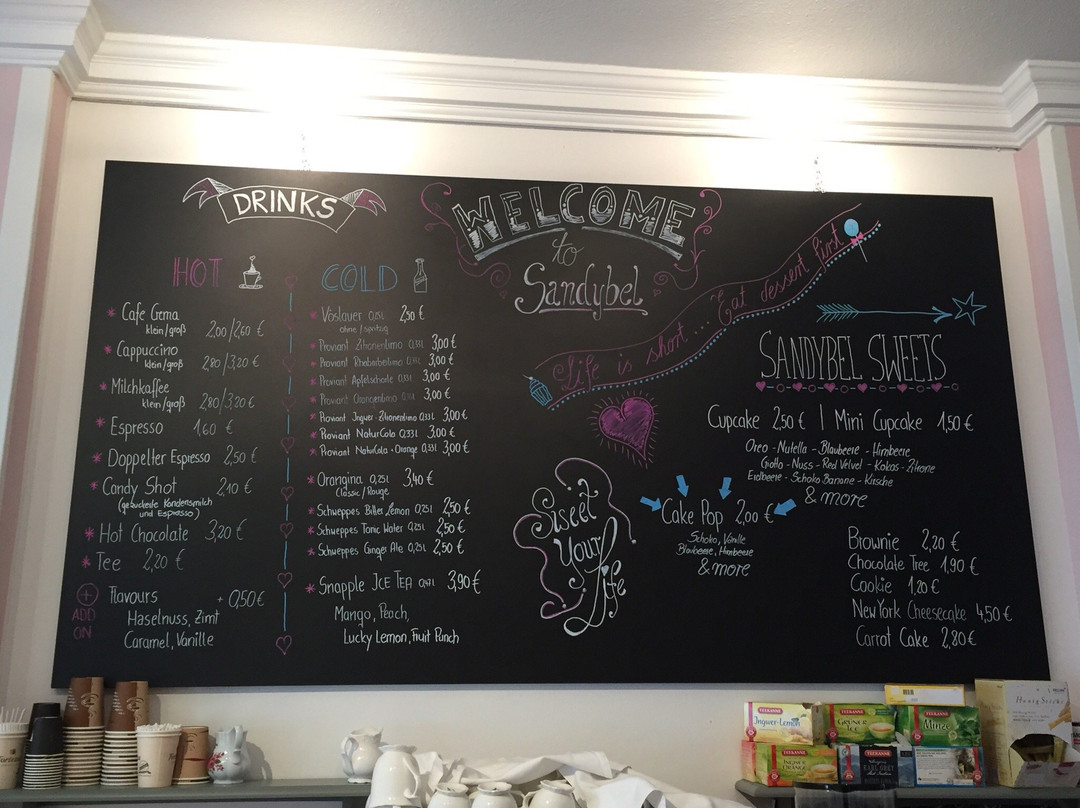 DRINKS
HOT
* Cafe Crema
klein/groß 2,00/2,60 €
* Cappuccino
klein/groß 2,80/3,20 €
* Milchkaffee
klein/groß 2,80/3,20 €
* Espresso 1,60 €
* Doppelter Espresso 2,50 €
* Candy Shot 2,10 €
(gezuckerte Kondensmilch
und Espresso)
* Hot Chocolate 3,20 €
* Tee 2,20 €
+ ADD ON
Flavours + 0,50€
Haselnuss, Zimt
Caramel, Vanille
COLD
* Vöslauer 0,25l 2,50 €
ohne/spritzig
* Proviant Zitronenlimo 0,33l 3,00 €
* Proviant Rhabarberlimo 0,33l 3,00 €
* Proviant Apfelschorle 0,33l 3,00 €
* Proviant Orangenlimo 0,33l 3,00 €
* Proviant Ingwer-Zitronenlimo 0,33l 3,00 €
* Proviant NaturCola 0,33l 3,00 €
* Proviant NaturCola+Orange 0,33l 3,00 €
* Orangina 0,25l 3,40 €
Classic/Rouge
* Schweppes Bitter Lemon 0,25l 2,50 €
* Schweppes Tonic Water 0,25l 2,50 €
* Schweppes Ginger Ale 0,25l 2,50 €
* Snapple ICE TEA 3,90 €
Mango, Peach,
Lucky Lemon, Fruit Punch
WELCOME
to
Sandybel
Life is short... Eat dessert first
Sweet
Your
life
SANDYBEL SWEETS
Cupcake 2,50 € | Mini Cupcake 1,50 €
Oreo - Nutella - Blaubeere - Himbeere
Giotto - Nuss - Red Velvet - Kokos - Zitrone
Erdbeere - Schoko Banane - Kirsche
& more
Cake Pop 2,00 €
Schoko, Vanille
Blaubeere, Himbeere
& more
Brownie 2,20 €
Chocolate Tree 1,90 €
Cookie 1,20 €
New York Cheesecake 4,50 €
Carrot Cake 2,80 €
TEEKANNE
Ingwer-Lemon
TEEKANNE
GRÜNER TEE
TEEKANNE
Minze
TEEKANNE
INGWER ORANGE
TEEKANNE
EARL GREY
TEEKANNE
Honig Sticks